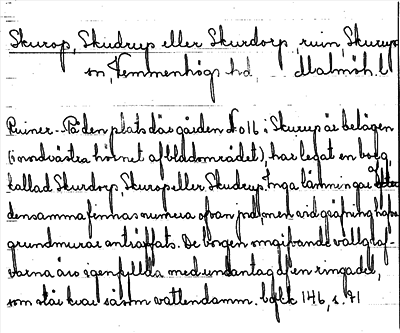 Skurop, Skudrup eller Skurdorp, ruin, Skurups
sn, Vemmenhögs hd, Malmöh. l
Ruiner. På den plats där gården No 16 i Skurup är belägen
(i nordvästra hörnet af bladområdet), har legat en borg,
kallad Skurdorp, Skurop eller Skudrup. Inga lämningar efter
densamma finnas numera ofvan jord, men vid gräfning hafva
grundmurar anträffats. De borgen omgifvande vallgraf-
varna äro igenfyllda med undantag af en ringa del,
som står kvar såsom vattendamm.
146, s. 71